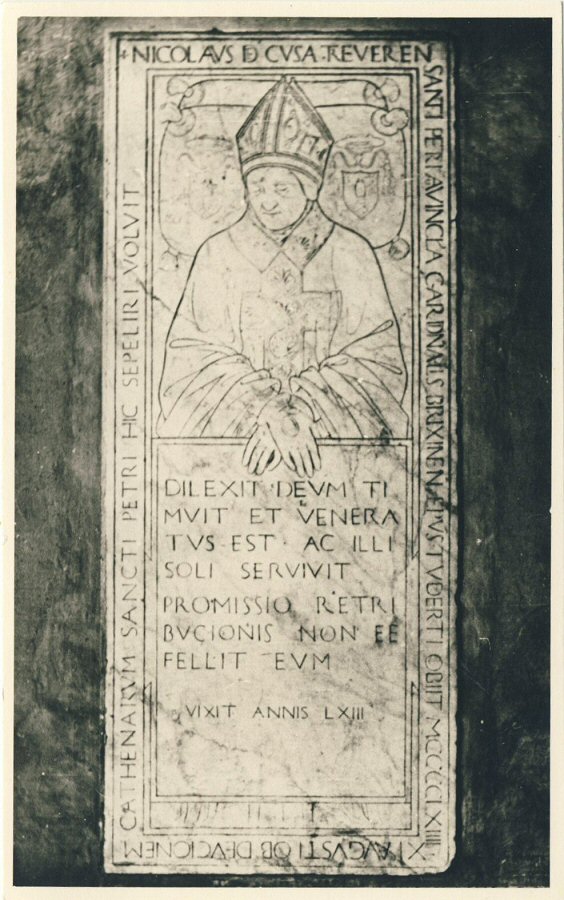 NICOLAVS DE CVSA TREVEREN
SANTI PETRI AVINCVLA CARDINALIS BRIXINEN EPVS TVDERTI OBIIT MCCCCLXIIII
XI AVGVSTI OB DEVCIONEM
CATHENARVM SANCTI PETRI HIC SEPELIRI VOLVIT
DILEXIT DEVM TI
MVIT ET VENERA
TVS EST AC ILLI
SOLI SERVIVIT
PROMISSIO RETRI
BVCIONIS NON FE
FELLIT EVM
VIXIT ANNIS LXIII